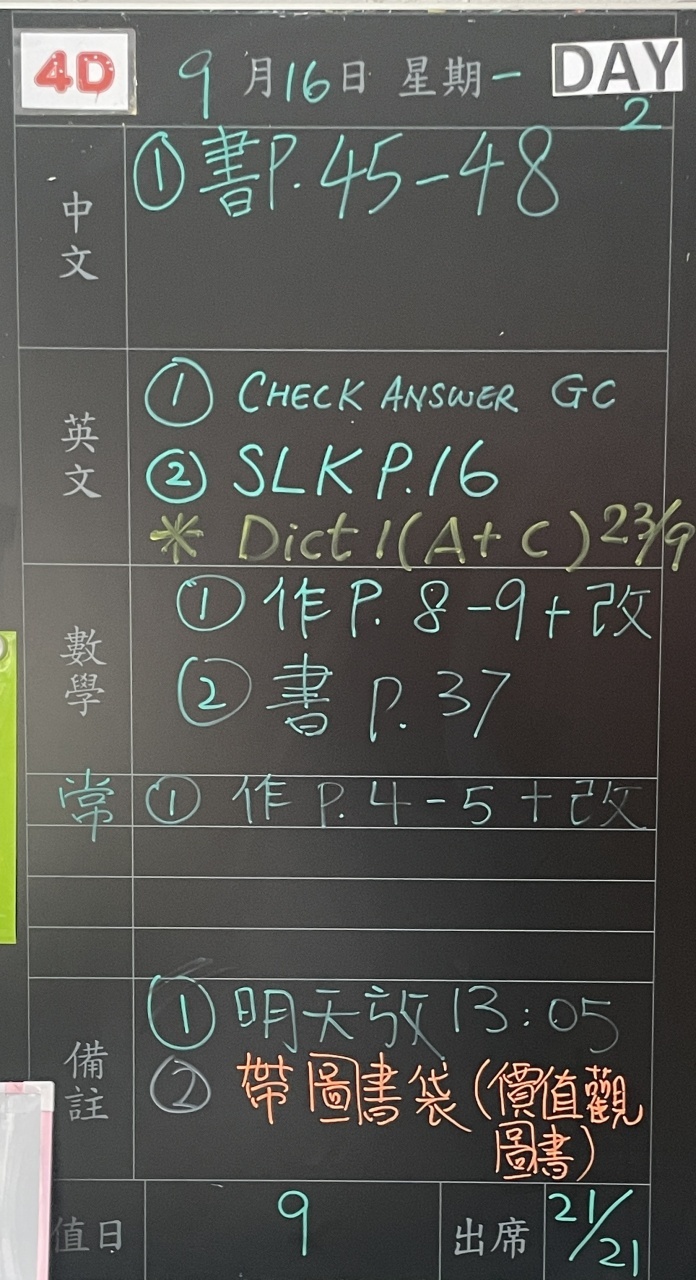 4D 9月16日 星期一 DAY 2
中文 ①書P.45-48
英文 ① CHECK ANSWER GC
② SLK P.16
* Dict 1(A+C) 23/9
數學 ①作P.8-9+改
②書 P.37
常 ①作P.4-5+改
備註 ①明天放13:05
②帶圖書袋(價值觀
圖書)
值日 9 出席 21/21